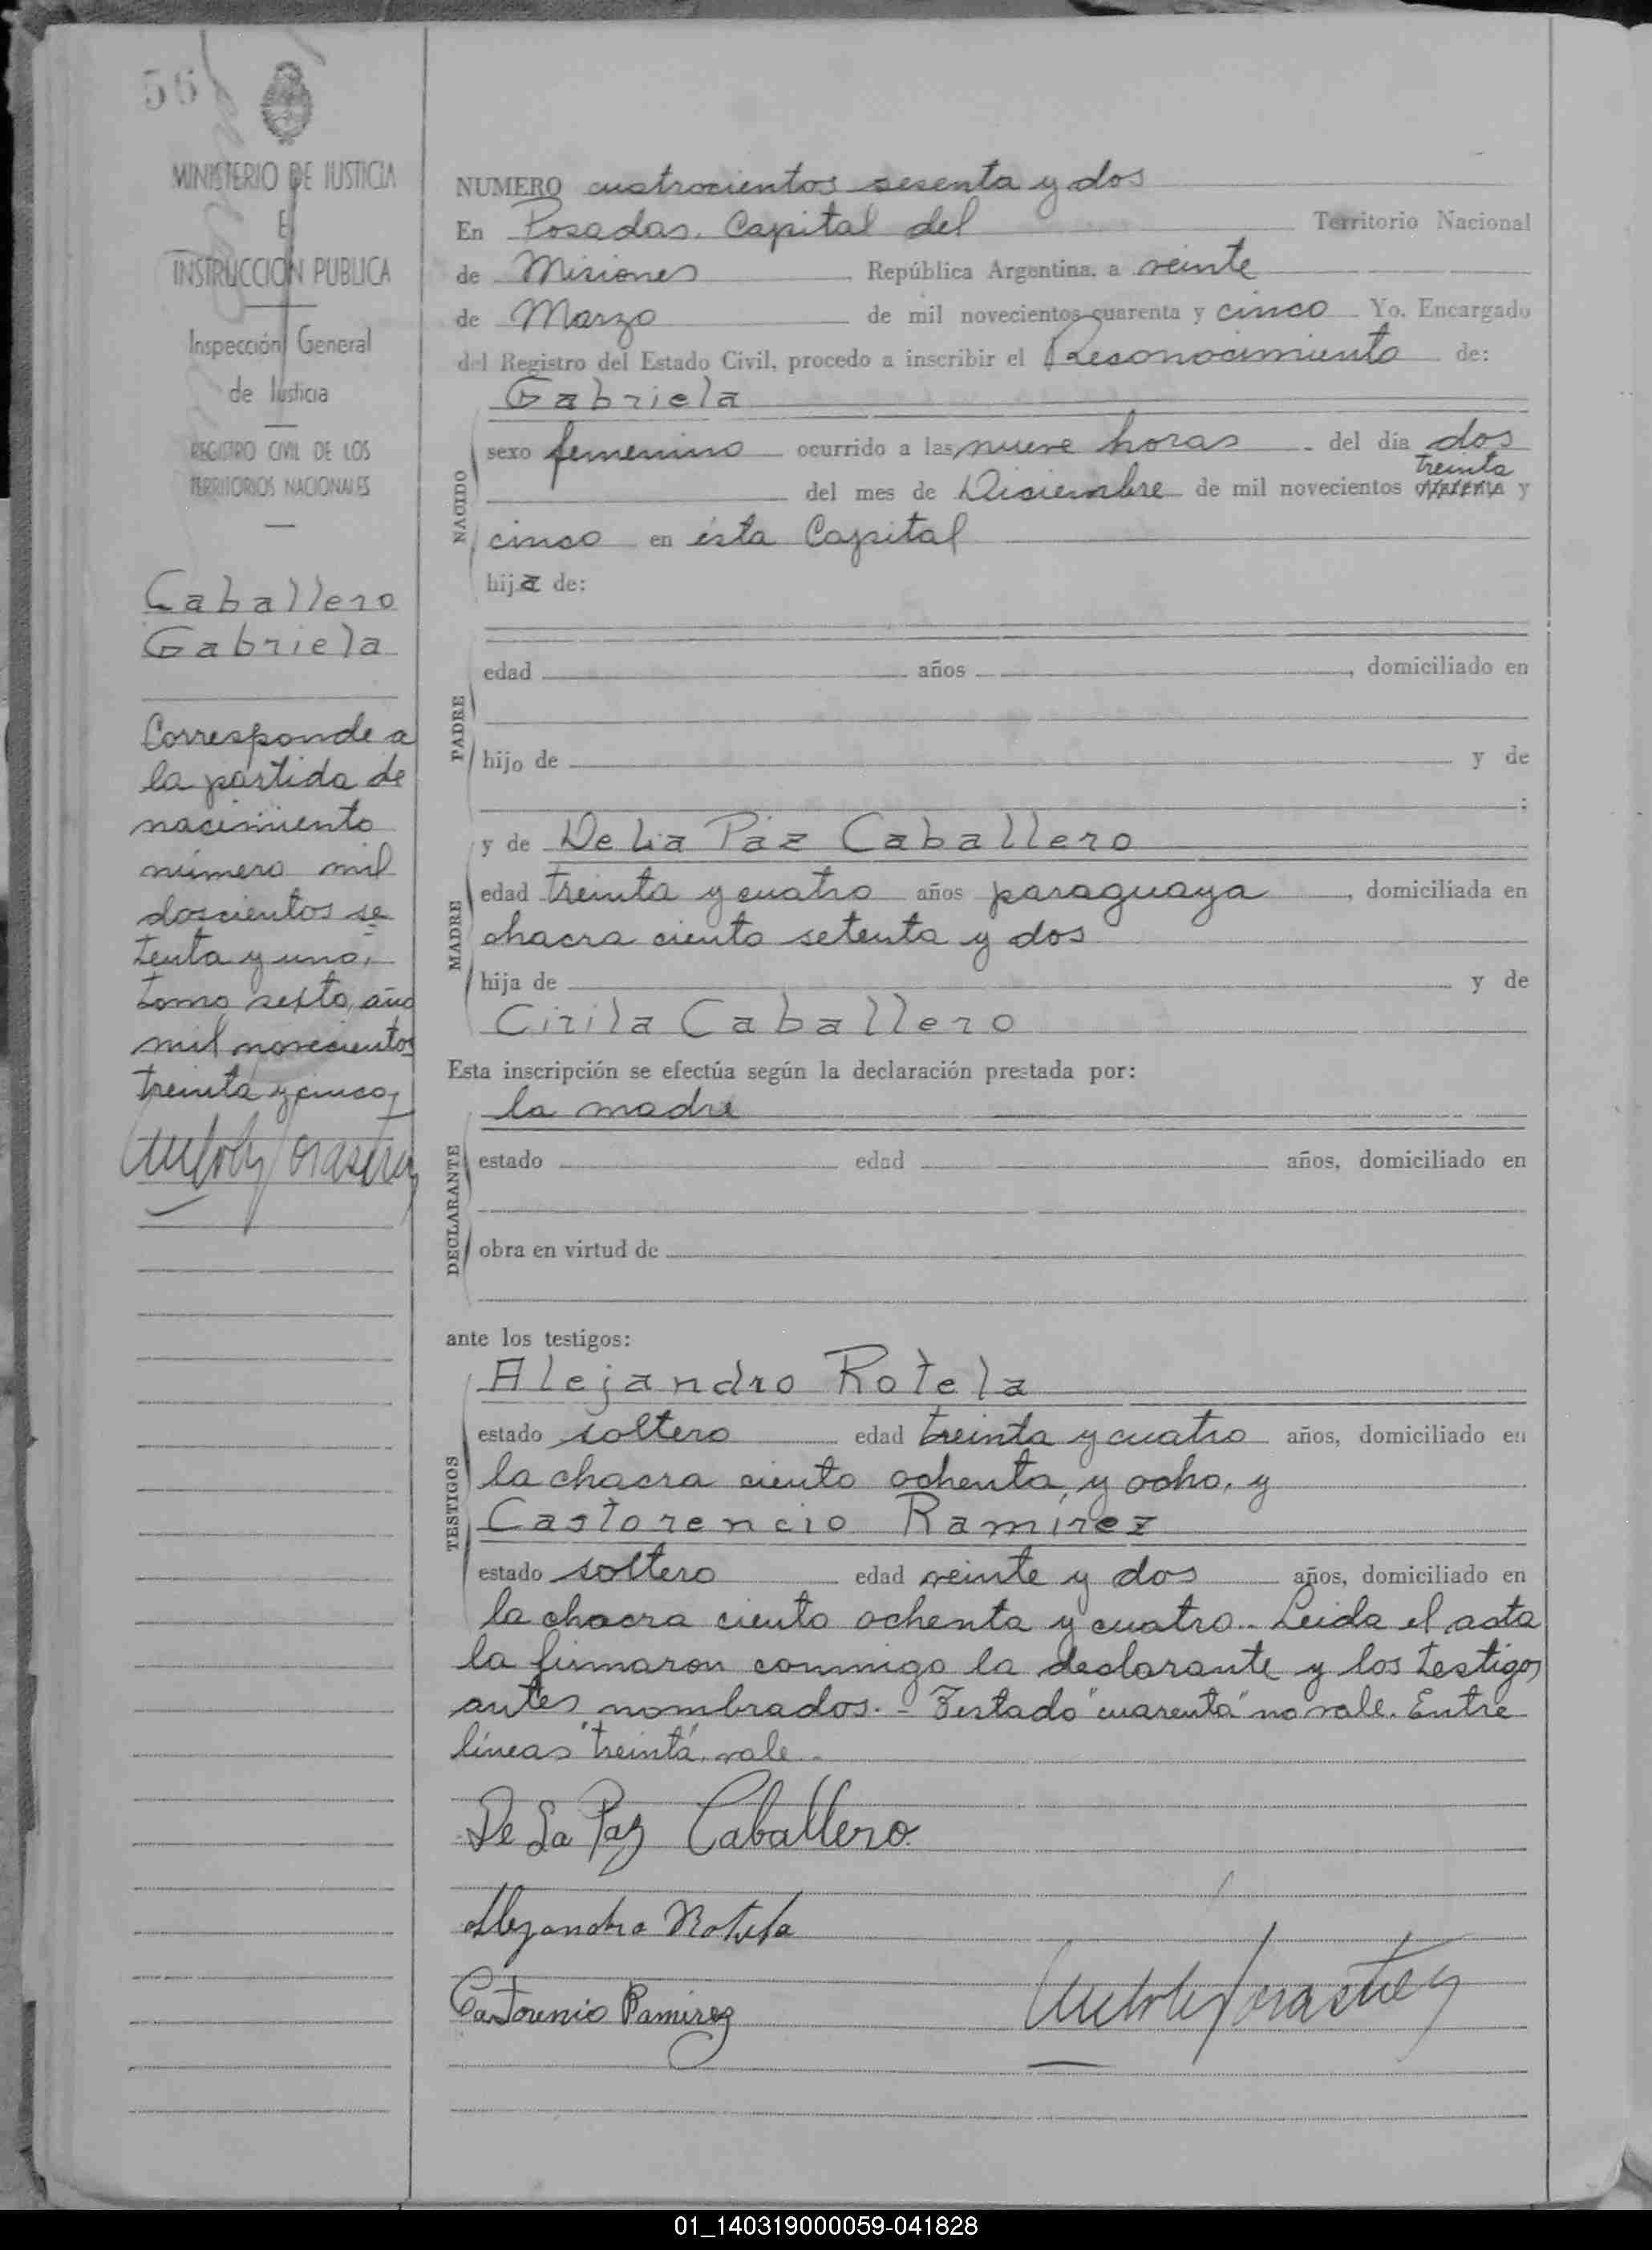 56
MINISTERIO DE JUSTICIA
E
INSTRUCCION PUBLICA
Inspección General
de Justicia
REGISTRO CIVIL DE LOS
TERRITORIOS NACIONALES
Caballero
Gabriela
Corresponde a
la partida de
nacimiento
número mil
doscientos se
tenta y uno,
tomo sexto, año
mil novecientos
treinta y cinco,
NUMERO cuatrocientos sesenta y dos
En Posadas, Capital del Territorio Nacional
de Misiones República Argentina, a veinte
de Marzo de mil novecientos cuarenta y cinco Yo, Encargado
del Registro del Estado Civil, procedo a inscribir el Reconocimiento de:
Gabriela
NACIDO
sexo femenino ocurrido a las nueve horas del día dos
treinta
del mes de Diciembre de mil novecientos y
cinco en ésta Capital
hija de:
PADRE
edad años , domiciliado en
hijo de y de
;
y de De La Paz Caballero
MADRE
edad treinta y cuatro años paraguaya , domiciliada en
chacra ciento setenta y dos
hija de y de
Cirila Caballero
Esta inscripción se efectúa según la declaración prestada por:
la madre
DECLARANTE
estado edad años, domiciliado en
obra en virtud de
ante los testigos:
Alejandro Rotela
TESTIGOS
estado soltero edad treinta y cuatro años, domiciliado en
la chacra ciento ochenta y ocho, y
Castorencio Ramírez
estado soltero edad veinte y dos años, domiciliado en
la chacra ciento ochenta y cuatro.- Leida el acta
la firmaron conmigo la declarante y los testigos
antes nombrados.- Testado "cuarenta" no vale. Entre
líneas "treinta" vale.-
De La Paz Caballero
Alejandro Rotela
Castorencio Ramirez
01_140319000059-041828